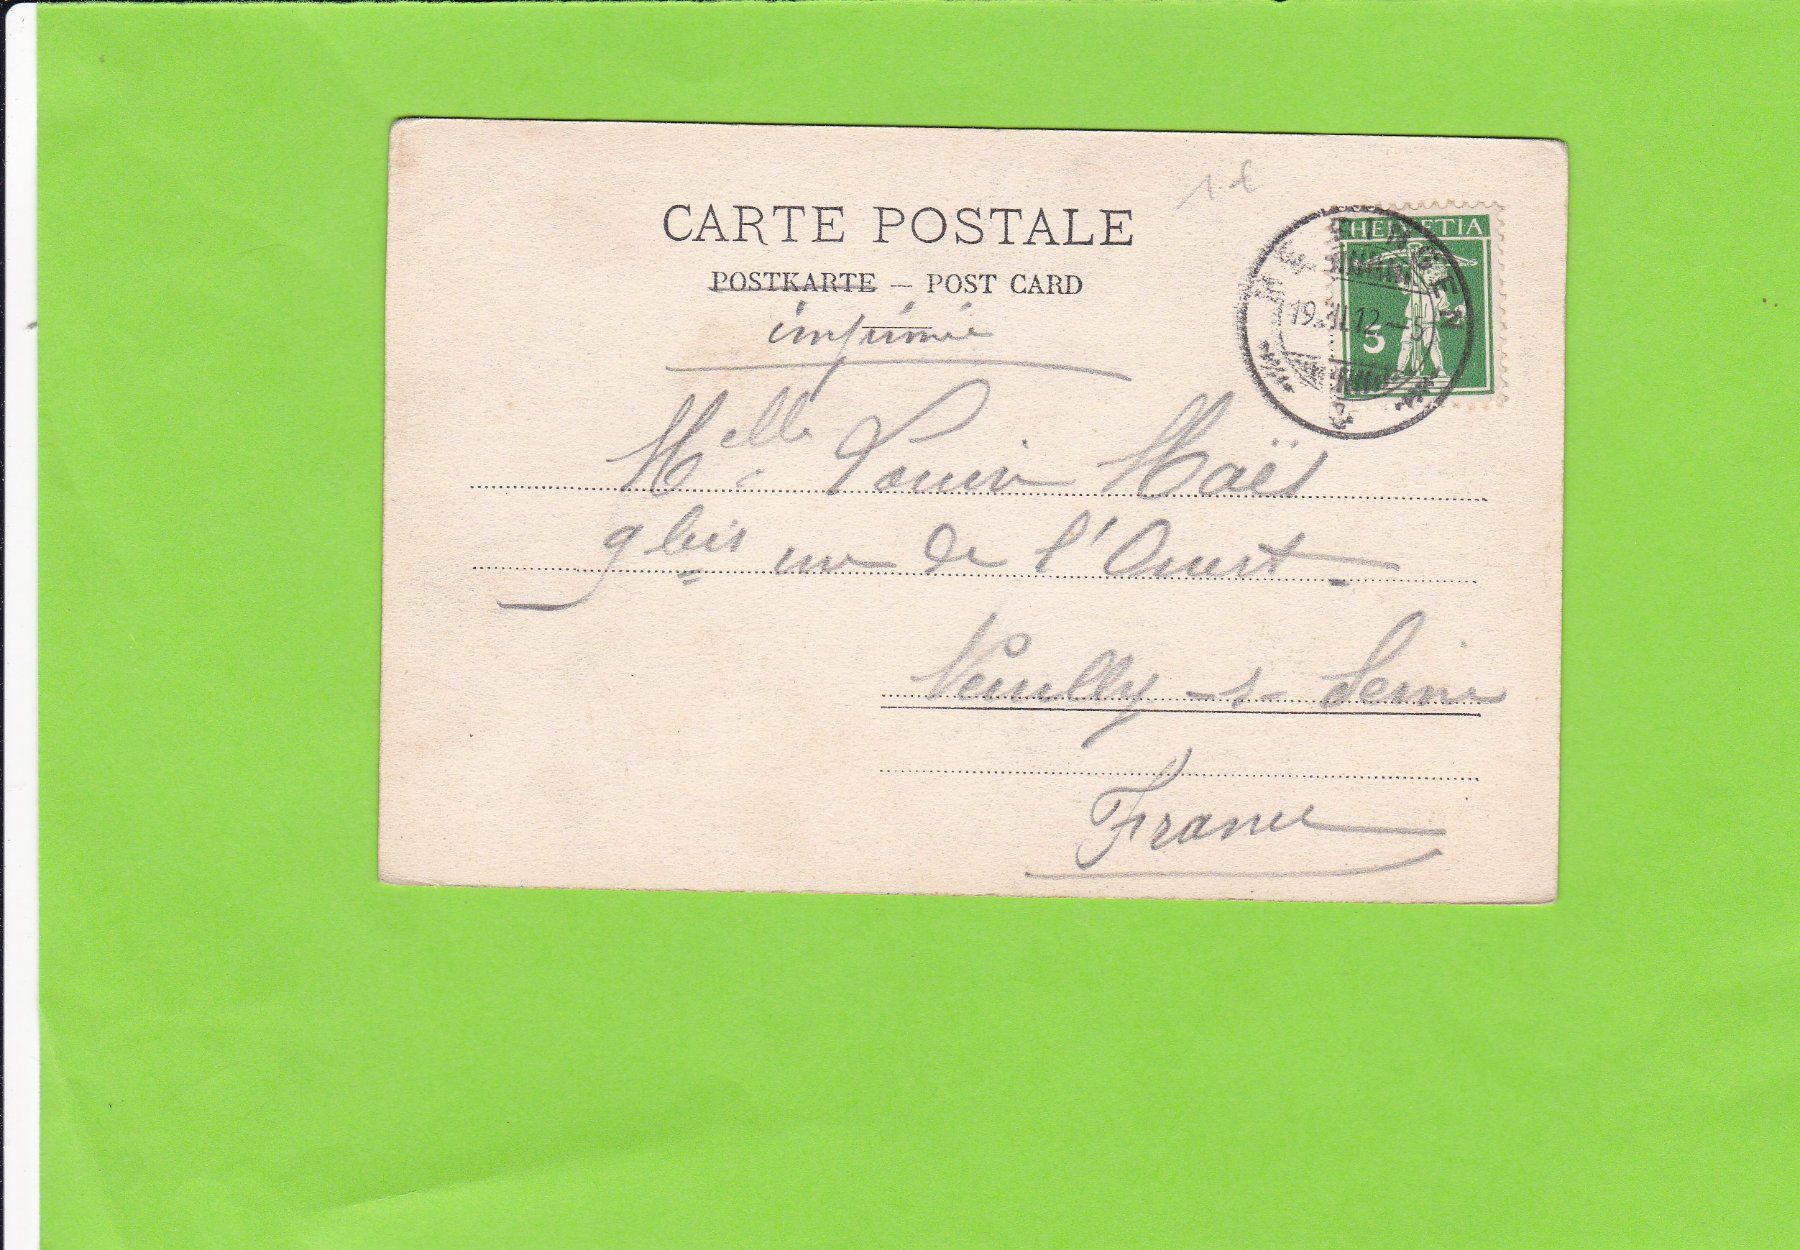 1 €
CARTE POSTALE
POSTKARTE — POST CARD
imprimé
HELVETIA
5
19. 12 - 5
Melle Louise Maës
9 bis rue de l'Ouest
Neuilly -s- Seine
France